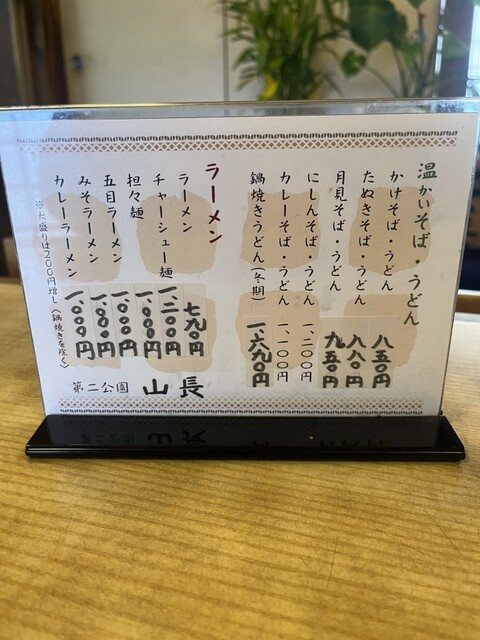 温かいそば・うどん
かけそば・うどん 八五〇円
たぬきそば・うどん 八八〇円
月見そば・うどん 九五〇円
にしんそば・うどん 一、二〇〇円
カレーそば・うどん 一、一〇〇円
鍋焼きうどん(冬期) 一、六九〇円
ラーメン
ラーメン 七九〇円
チャーシュー麺 一、二〇〇円
担々麺 一、〇〇〇円
五目ラーメン 一、〇〇〇円
みそラーメン 一、〇〇〇円
カレーラーメン 一、〇〇〇円
※大盛りは200円増し〈鍋焼きを除く〉
第二公園 山長